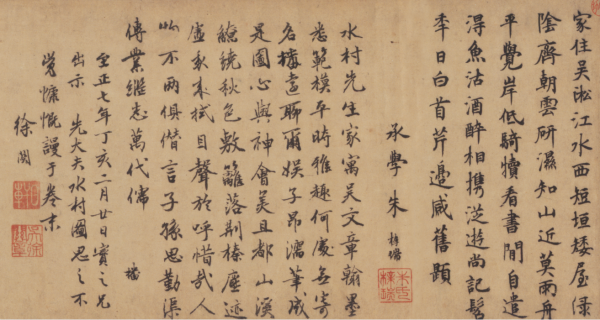 家住吴淞江水西短垣矮屋绿
陰齊朝雲研濕知山近莫雨舟
平覺岸低騎犢看書閒自遣
得魚沽酒醉相携從遊尚記髫
年日白首芹邊感舊題
承學朱
水村先生家寓吴文章翰墨
悉範模平時雅趣何處無寄
名聊爾娱子昂濡筆成
是圖心與神會美且都山溪
繞秋色敷籬落荆榛塵迹
虚我来拭目聲於呼惜哉人
物不兩俱僭言子孫思勤渠
傳業繼志萬代儒
至正七年丁亥二月廿日寶之兄
出示 先大夫水村圖思之不
覺慷慨謾于卷末
徐関